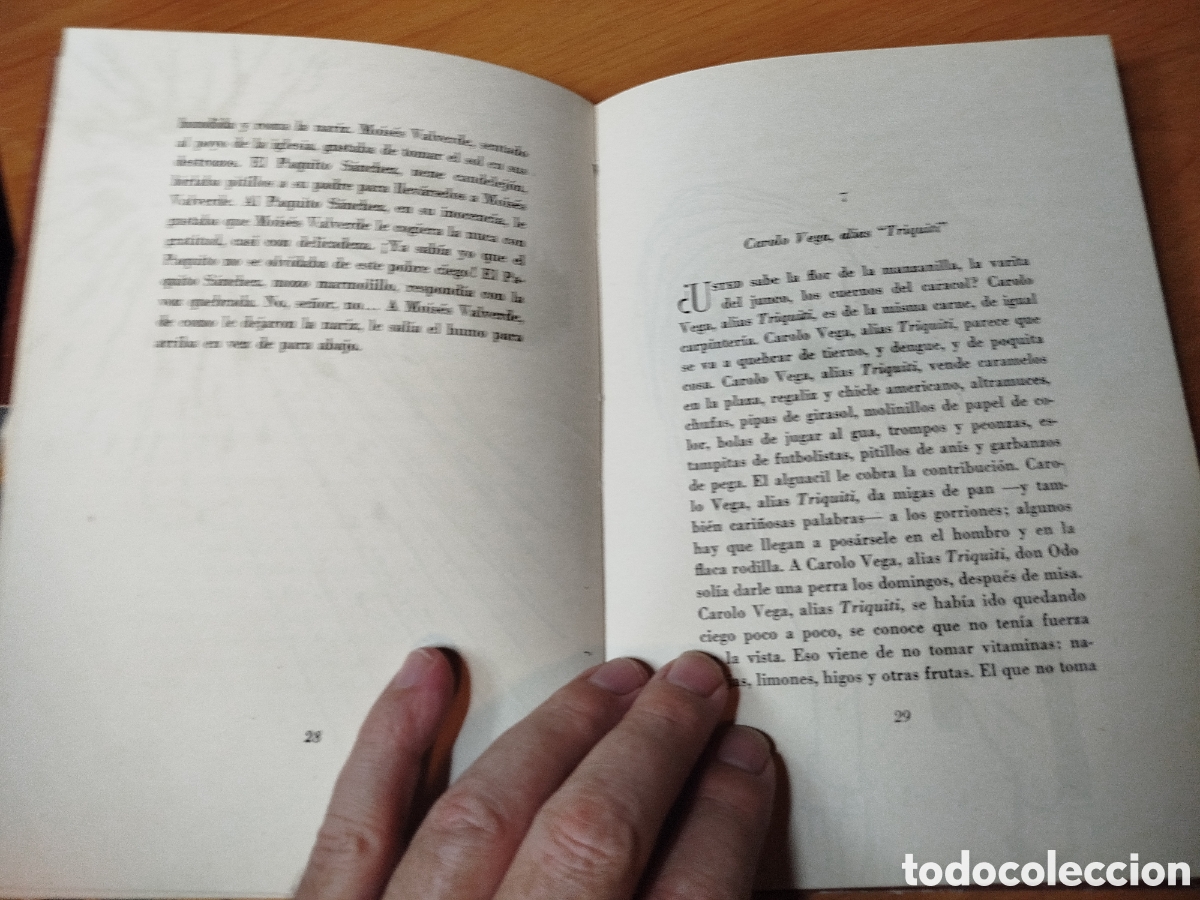 y roma la nariz. Moisés Valverde, sentado
al poyo de la iglesia, gustaba de tomar el sol en sus
El Paquito Sánchez, nene candelejón,
pitillos a su padre para llevárselos a Moisés
Valverde. Al Paquito Sánchez, en su inocencia, le
gustaba que Moisés Valverde le cogiera la nuca con
gratitud, casi con delicadeza. ¡Ya sabía yo que el
Paquito no se olvidaba de este pobre ciego! El Pa-
quito Sánchez, mozo marmolillo, respondía con la
voz quebrada. No, señor, no... A Moisés Valverde,
de como le dejaron la nariz, le salía el humo para
arriba en vez de para abajo.
28
7
Carolo Vega, alias "Triquiti"
¿USTED sabe la flor de la manzanilla, la varita
del junco, los cuernos del caracol? Carolo
Vega, alias Triquiti, es de la misma carne, de igual
carpintería. Carolo Vega, alias Triquiti, parece que
se va a quebrar de tierno, y dengue, y de poquita
cosa. Carolo Vega, alias Triquiti, vende caramelos
en la plaza, regaliz y chicle americano, altramuces,
chufas, pipas de girasol, molinillos de papel de co-
lor, bolas de jugar al gua, trompos y peonzas, es-
tampitas de futbolistas, pitillos de anís y garbanzos
de pega. El alguacil le cobra la contribución. Caro-
lo Vega, alias Triquiti, da migas de pan —y tam-
bién cariñosas palabras— a los gorriones; algunos
hay que llegan a posársele en el hombro y en la
flaca rodilla. A Carolo Vega, alias Triquiti, don Odo
solía darle una perra los domingos, después de misa.
Carolo Vega, alias Triquiti, se había ido quedando
ciego poco a poco, se conoce que no tenía fuerza
la vista. Eso viene de no tomar vitaminas: na-
jas, limones, higos y otras frutas. El que no toma
29
todocoleccion